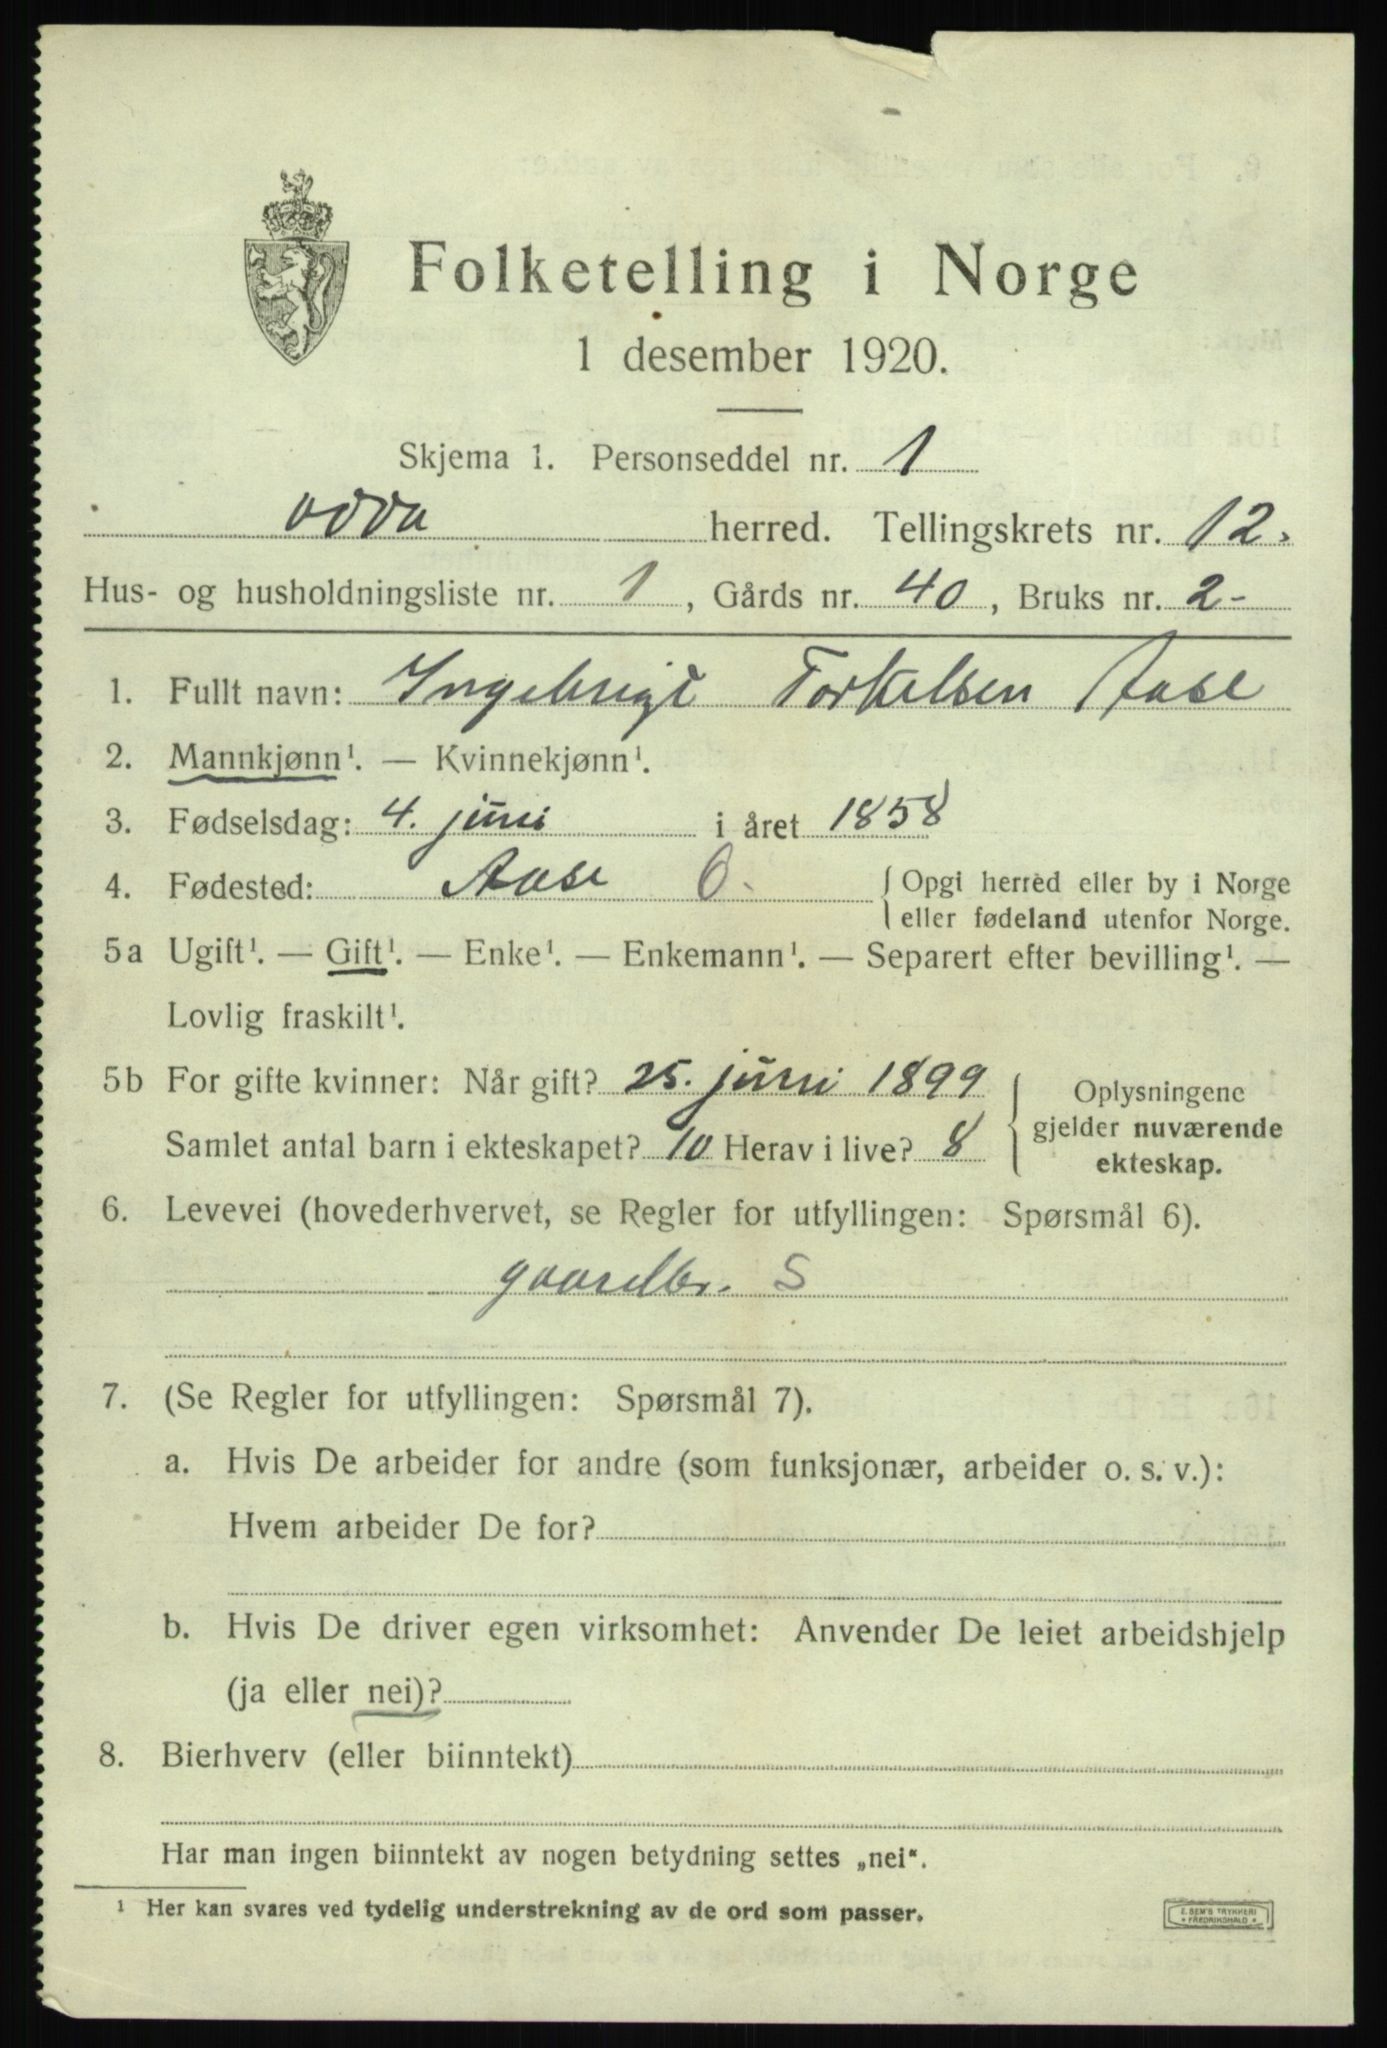 Folketelling i Norge
1 desember 1920.
Skjema 1. Personseddel nr. 1
Odda herred. Tellingskrets nr. 12.
Hus- og husholdningsliste nr. 1, Gårds nr. 40, Bruks nr. 2-
1. Fullt navn: Ingebrigt Torkelsen Aase
2. Mannkjønn¹. — Kvinnekjønn¹.
3. Fødselsdag: 4. juni i året 1858
4. Fødested: Aase O. { Opgi herred eller by i Norge
eller fødeland utenfor Norge.
5a Ugift¹. — Gift¹. — Enke¹. — Enkemann¹. — Separert efter bevilling¹. —
Lovlig fraskilt¹.
5b For gifte kvinner: Når gift? 25. juni 1899
Samlet antal barn i ekteskapet? 10 Herav i live? 8
{ Oplysningene
gjelder nuværende
ekteskap.
6. Levevei (hovederhvervet, se Regler for utfyllingen: Spørsmål 6).
gaardbr. S
7. (Se Regler for utfyllingen: Spørsmål 7).
a. Hvis De arbeider for andre (som funksjonær, arbeider o. s. v.):
Hvem arbeider De for?
b. Hvis De driver egen virksomhet: Anvender De leiet arbeidshjelp
(ja eller nei)?
8. Bierhverv (eller biinntekt)
Har man ingen biinntekt av nogen betydning settes „nei“.
¹ Her kan svares ved tydelig understrekning av de ord som passer.
E. SEM'S TRYKKERI
* FREDRIKSHALD *